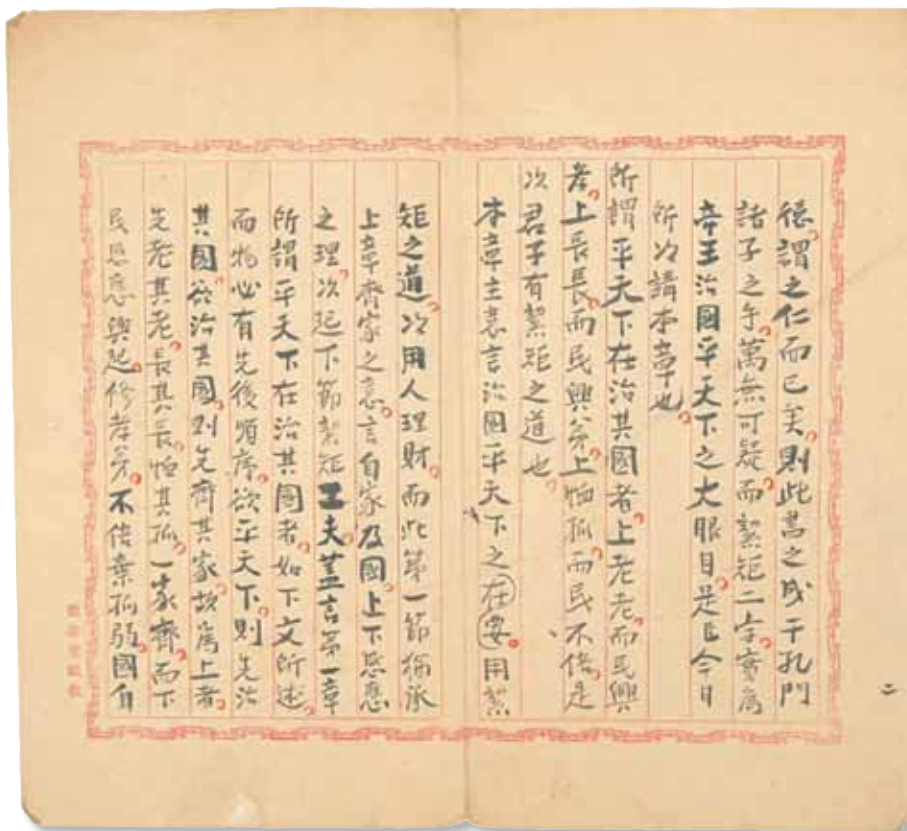 德謂之仁而已矣則此篇之成于孔門
諸子之手萬無可疑而絜矩二字實為
帝王治國平天下之大眼目是臣今日
所以講本章也
所謂平天下在治其國者上老老而民興
孝上長長而民興弟上恤孤而民不倍是
以君子有絜矩之道也
本章主意言治國平天下之在要用絜
矩之道以用人理財而此第一節猶承
上章齊家之意言自家及國上下感應
之理以起下節絜矩工夫蓋言第一章
所謂平天下在治其國者如下文所述
而物必有先後順序欲平天下則先治
其國欲治其國則先齊其家故為上者
先老其老長其長恤其孤一家齊而下
民感應興起修孝弟不倍棄孤弱國自
二